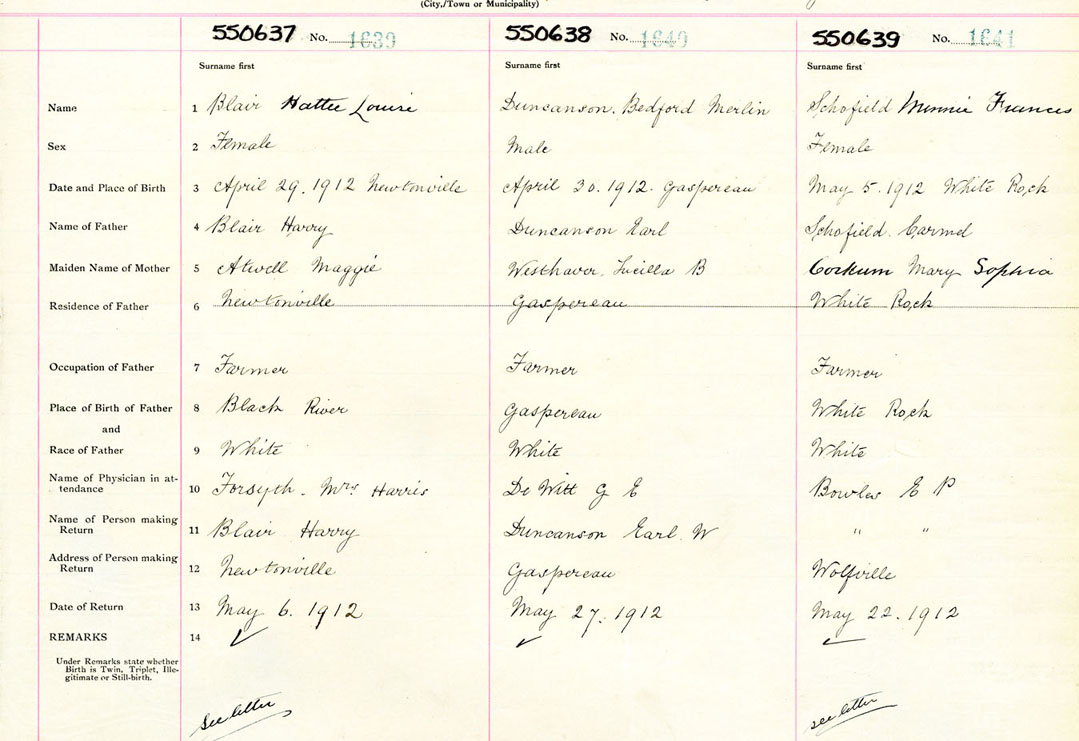 (City,/Town or Municipality)
550637 No. 1639 550638 No. 1640 550639 No. 1641
Surname first Surname first Surname first
Name 1 Blair Hattie Louise Duncanson. Bedford Merlin Schofield Minnie Frances
Sex 2 Female Male Female
Date and Place of Birth 3 April 29. 1912 Newtonville April 30. 1912. Gaspereau May 5. 1912 White Rock
Name of Father 4 Blair Harry Duncanson Earl Schofield. Carmel
Maiden Name of Mother 5 Atwell Maggie Westhaver. Lucilla B Corkum Mary Sophia
Residence of Father 6 Newtonville Gaspereau White Rock
Occupation of Father 7 Farmer Farmer Farmer
Place of Birth of Father 8 Black River Gaspereau White Rock
and
Race of Father 9 White White White
Name of Physician in at-
tendance 10 Forsyth. Mrs Harris De Witt G E Bowles E P
Name of Person making
Return 11 Blair Harry Duncanson Earl W " "
Address of Person making
Return 12 Newtonville Gaspereau Wolfville
Date of Return 13 May 6. 1912 May 27. 1912 May 22. 1912
REMARKS 14 ✓ ✓ ✓
Under Remarks state whether
Birth is Twin, Triplet, Ille-
gitimate or Still-birth.
See letter see letter